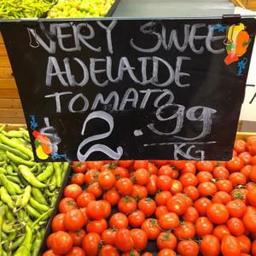 VERY SWEE
ADELAIDE
TOMATO
$ 2.99
KG